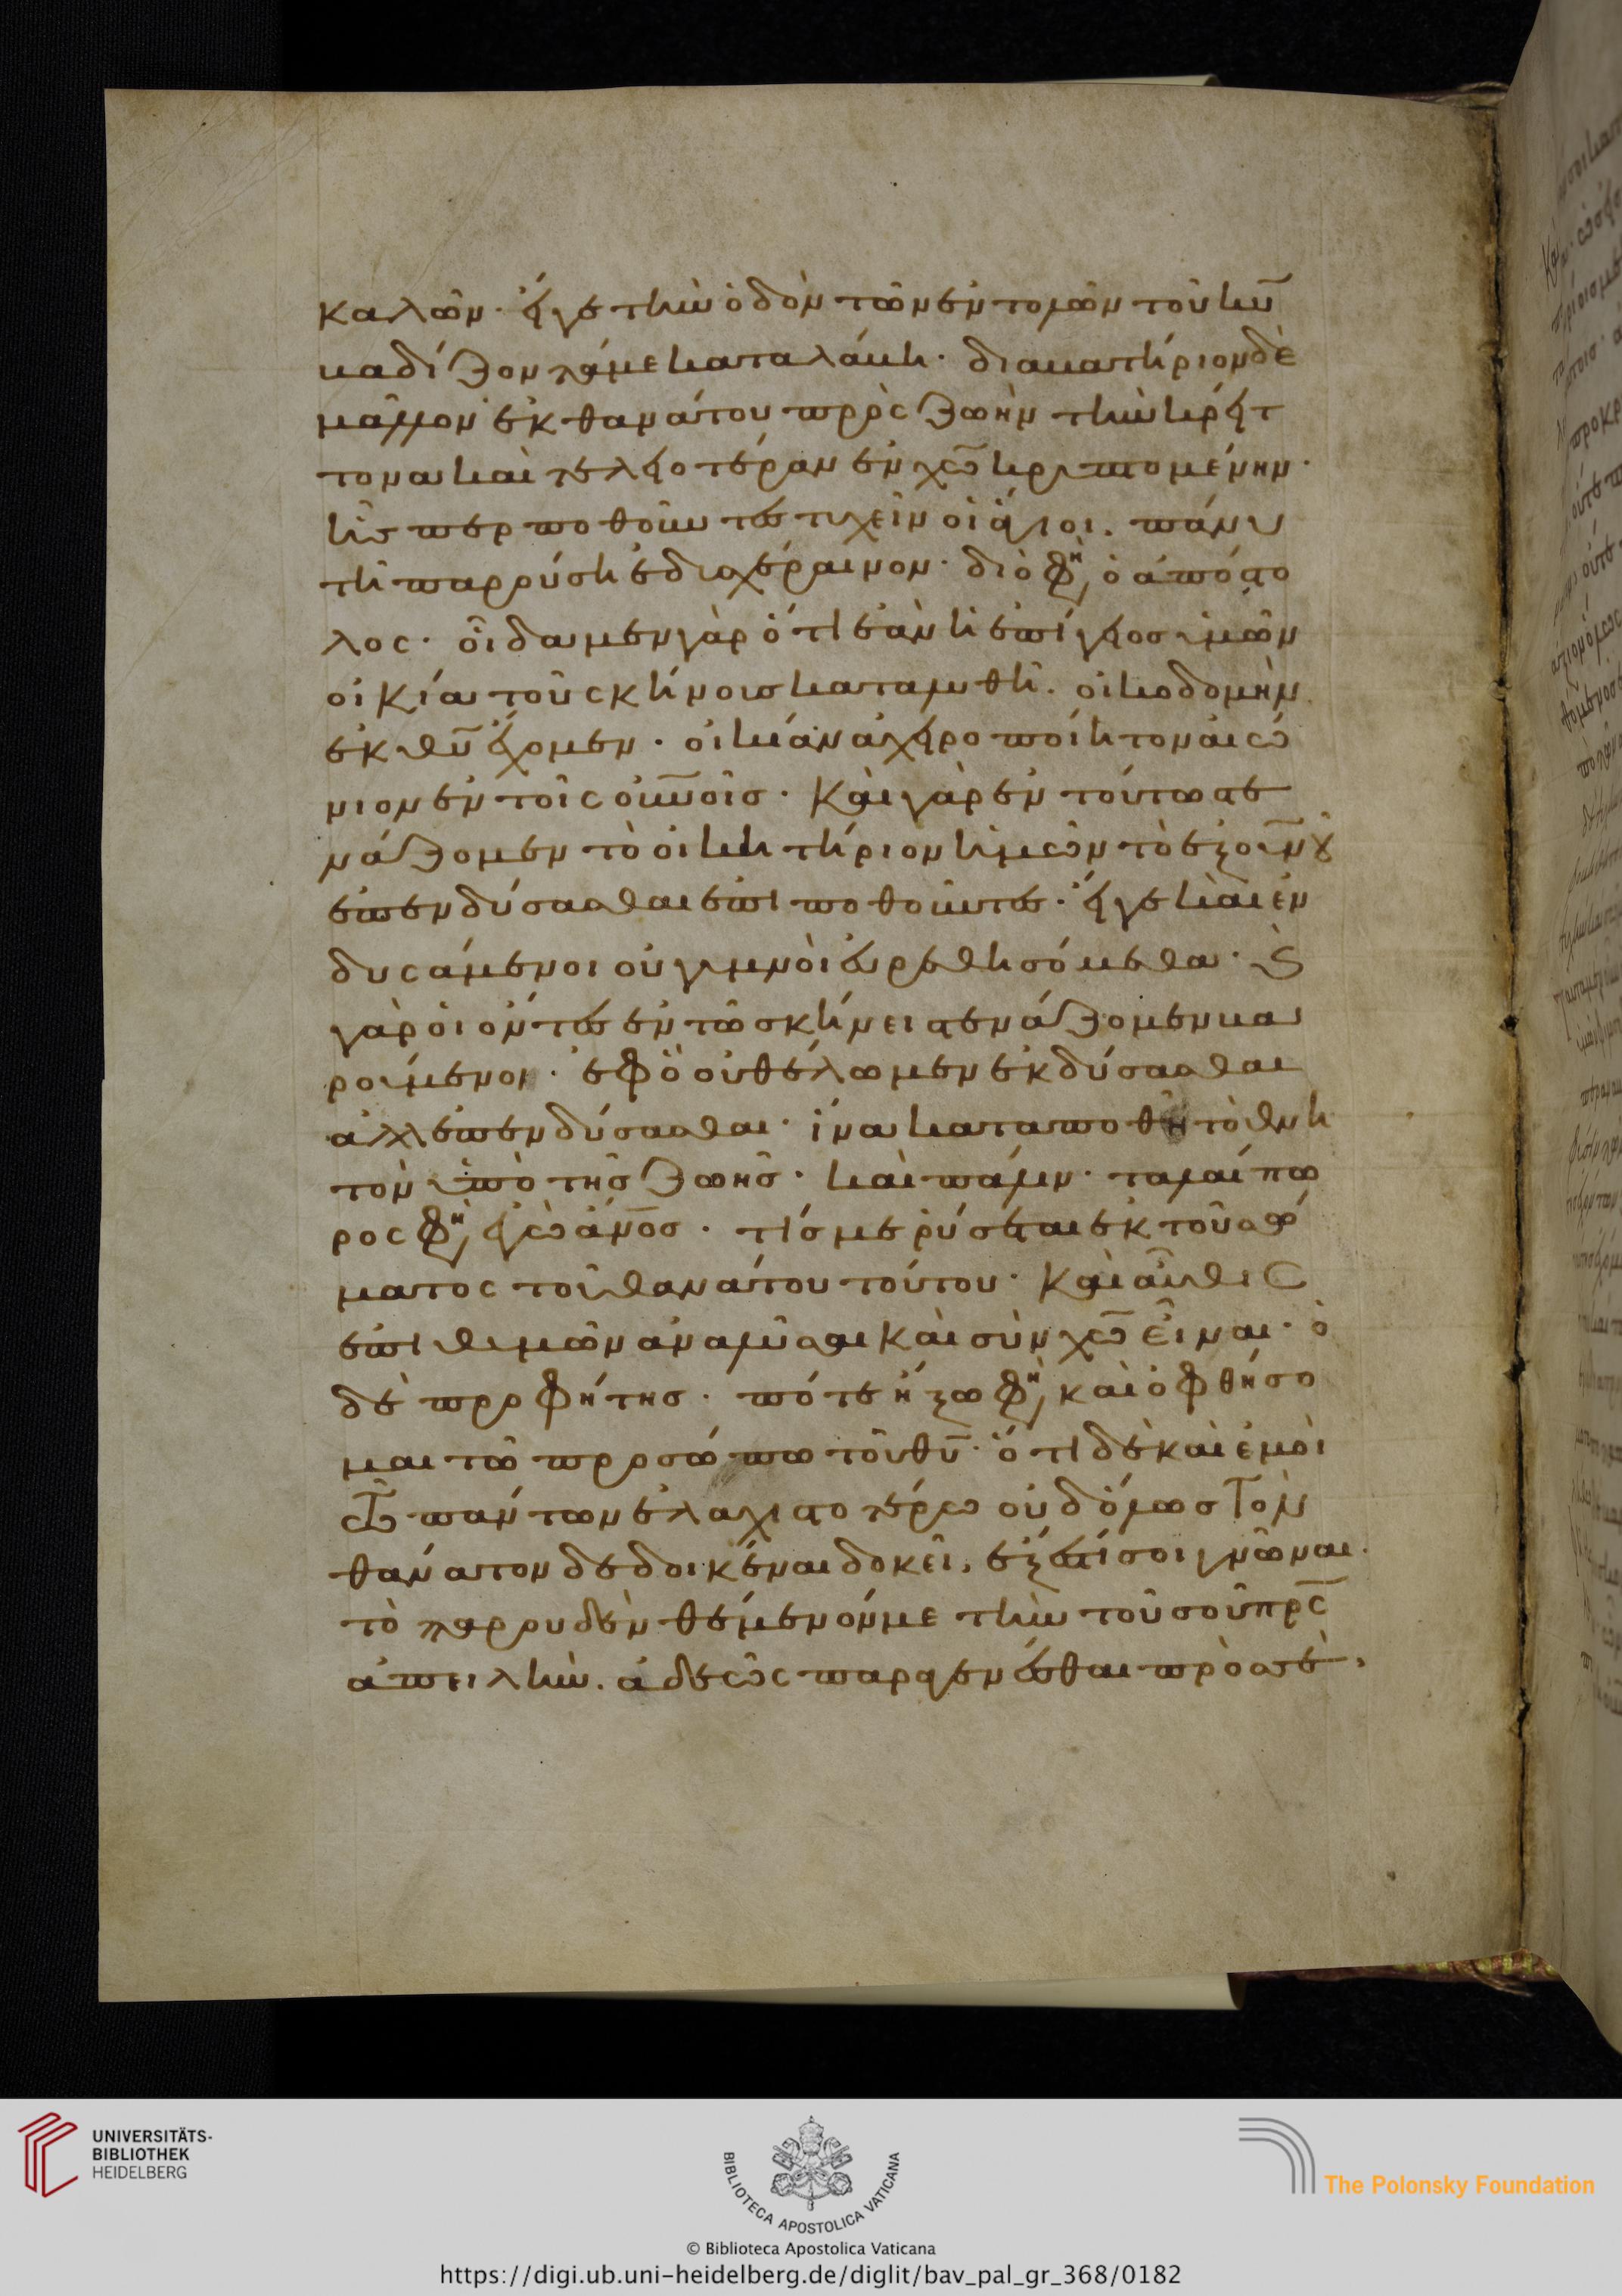 καλῶν· εἴγε τὴν ὁδὸν τῶν ἐντολῶν τοῦ κυ
καδίζοντά με καταλάβῃ· διαβατήριον δὲ
μᾶλλον ἐκ θανάτου πρὸς ζωὴν τὴν κρείτ
τονα καὶ τελεοτέραν ἐν χω κρυπτομένην·
ἧς περ ποθοῦντες τυχεῖν οἱ ἅγιοι. πάνυ
τῇ παρούσῃ ἐδυσχέραινον· διὸ φη ὁ ἀπόστο
λος· οἴδαμεν γὰρ ὅτι ἐὰν ἡ ἐπίγειος ἡμῶν
οἰκία τοῦ σκήνους καταλυθῇ. οἰκοδομὴν
ἐκ θυ ἔχομεν· οἰκίαν ἀχειροποίητον αἰώ
νιον ἐν τοῖς οὐνοῖς· καὶ γὰρ ἐν τούτω στε
νάζομεν τὸ οἰκητήριον ἡμῶν τὸ ἐξ οὐνοῦ
ἐπενδύσασθαι ἐπιποθοῦντες· εἴγε καὶ ἐν
δυσάμενοι οὐ γυμνοὶ εὑρεθησόμεθα· καὶ
γὰρ οἱ ὄντες ἐν τῶ σκήνει στενάζομεν βα
ρούμενοι· ἐφ ὃ οὐ θέλωμεν ἐκδύσασθαι
ἀλλ ἐπενδύσασθαι· ἵνα καταποθῆ τὸ θνη
τὸν ὑπὸ τῆς ζωῆς· καὶ πάλιν· ταλαίπω
ρος φη ἐγὼ ἄνος· τίς με ῥύσεται ἐκ τοῦ σώ
ματος τοῦ θανάτου τούτου· καὶ αὖθις
ἐπιθυμῶν ἀναλῦσαι καὶ σὺν χω εἶναι· ὁ
δὲ προφήτης· πότε ἥξω φη καὶ ὀφθήσο
μαι τῶ προσώπω τοῦ θυ· ὅτι δὲ καὶ ἐμοὶ
τῶ πάντων ἐλαχιστοτέρω οὐδ ὅλως τὸν
θάνατον δεδοικέναι δοκεῖ, ἔξεστί σοι γνῶναι.
τὸ παρ οὐδὲν θέμενόν με τὴν τοῦ σοῦ πρς
ἀπειλὴν. ἀδεῶς παραγενέσθαι πρὸς σὲ,
UNIVERSITÄTS-
BIBLIOTHEK
HEIDELBERG
BIBLIOTECA APOSTOLICA VATICANA
The Polonsky Foundation
© Biblioteca Apostolica Vaticana
https://digi.ub.uni-heidelberg.de/diglit/bav_pal_gr_368/0182